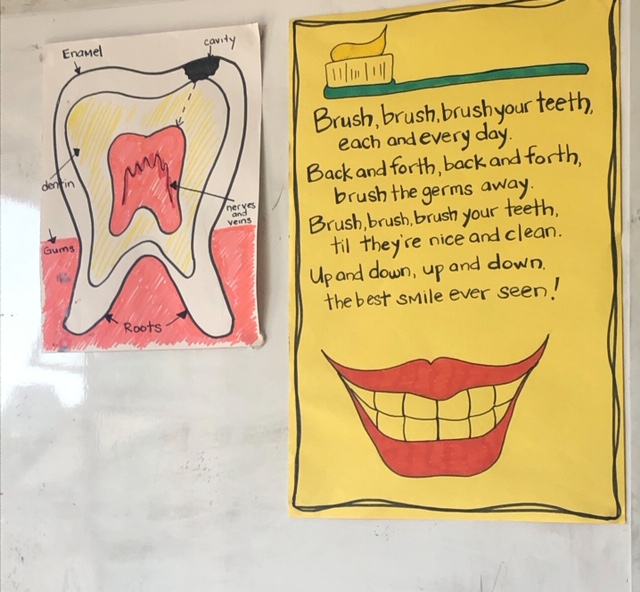 Enamel
cavity
dentin
nerves
and
veins
Gums
Roots
Brush, brush, brush your teeth,
each and every day.
Back and forth, back and forth,
brush the germs away.
Brush, brush, brush your teeth,
til they're nice and clean.
Up and down, up and down,
the best smile ever seen!